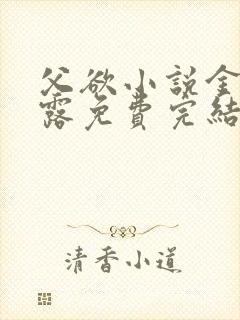 父欲小说金
露免費完結
清香小道